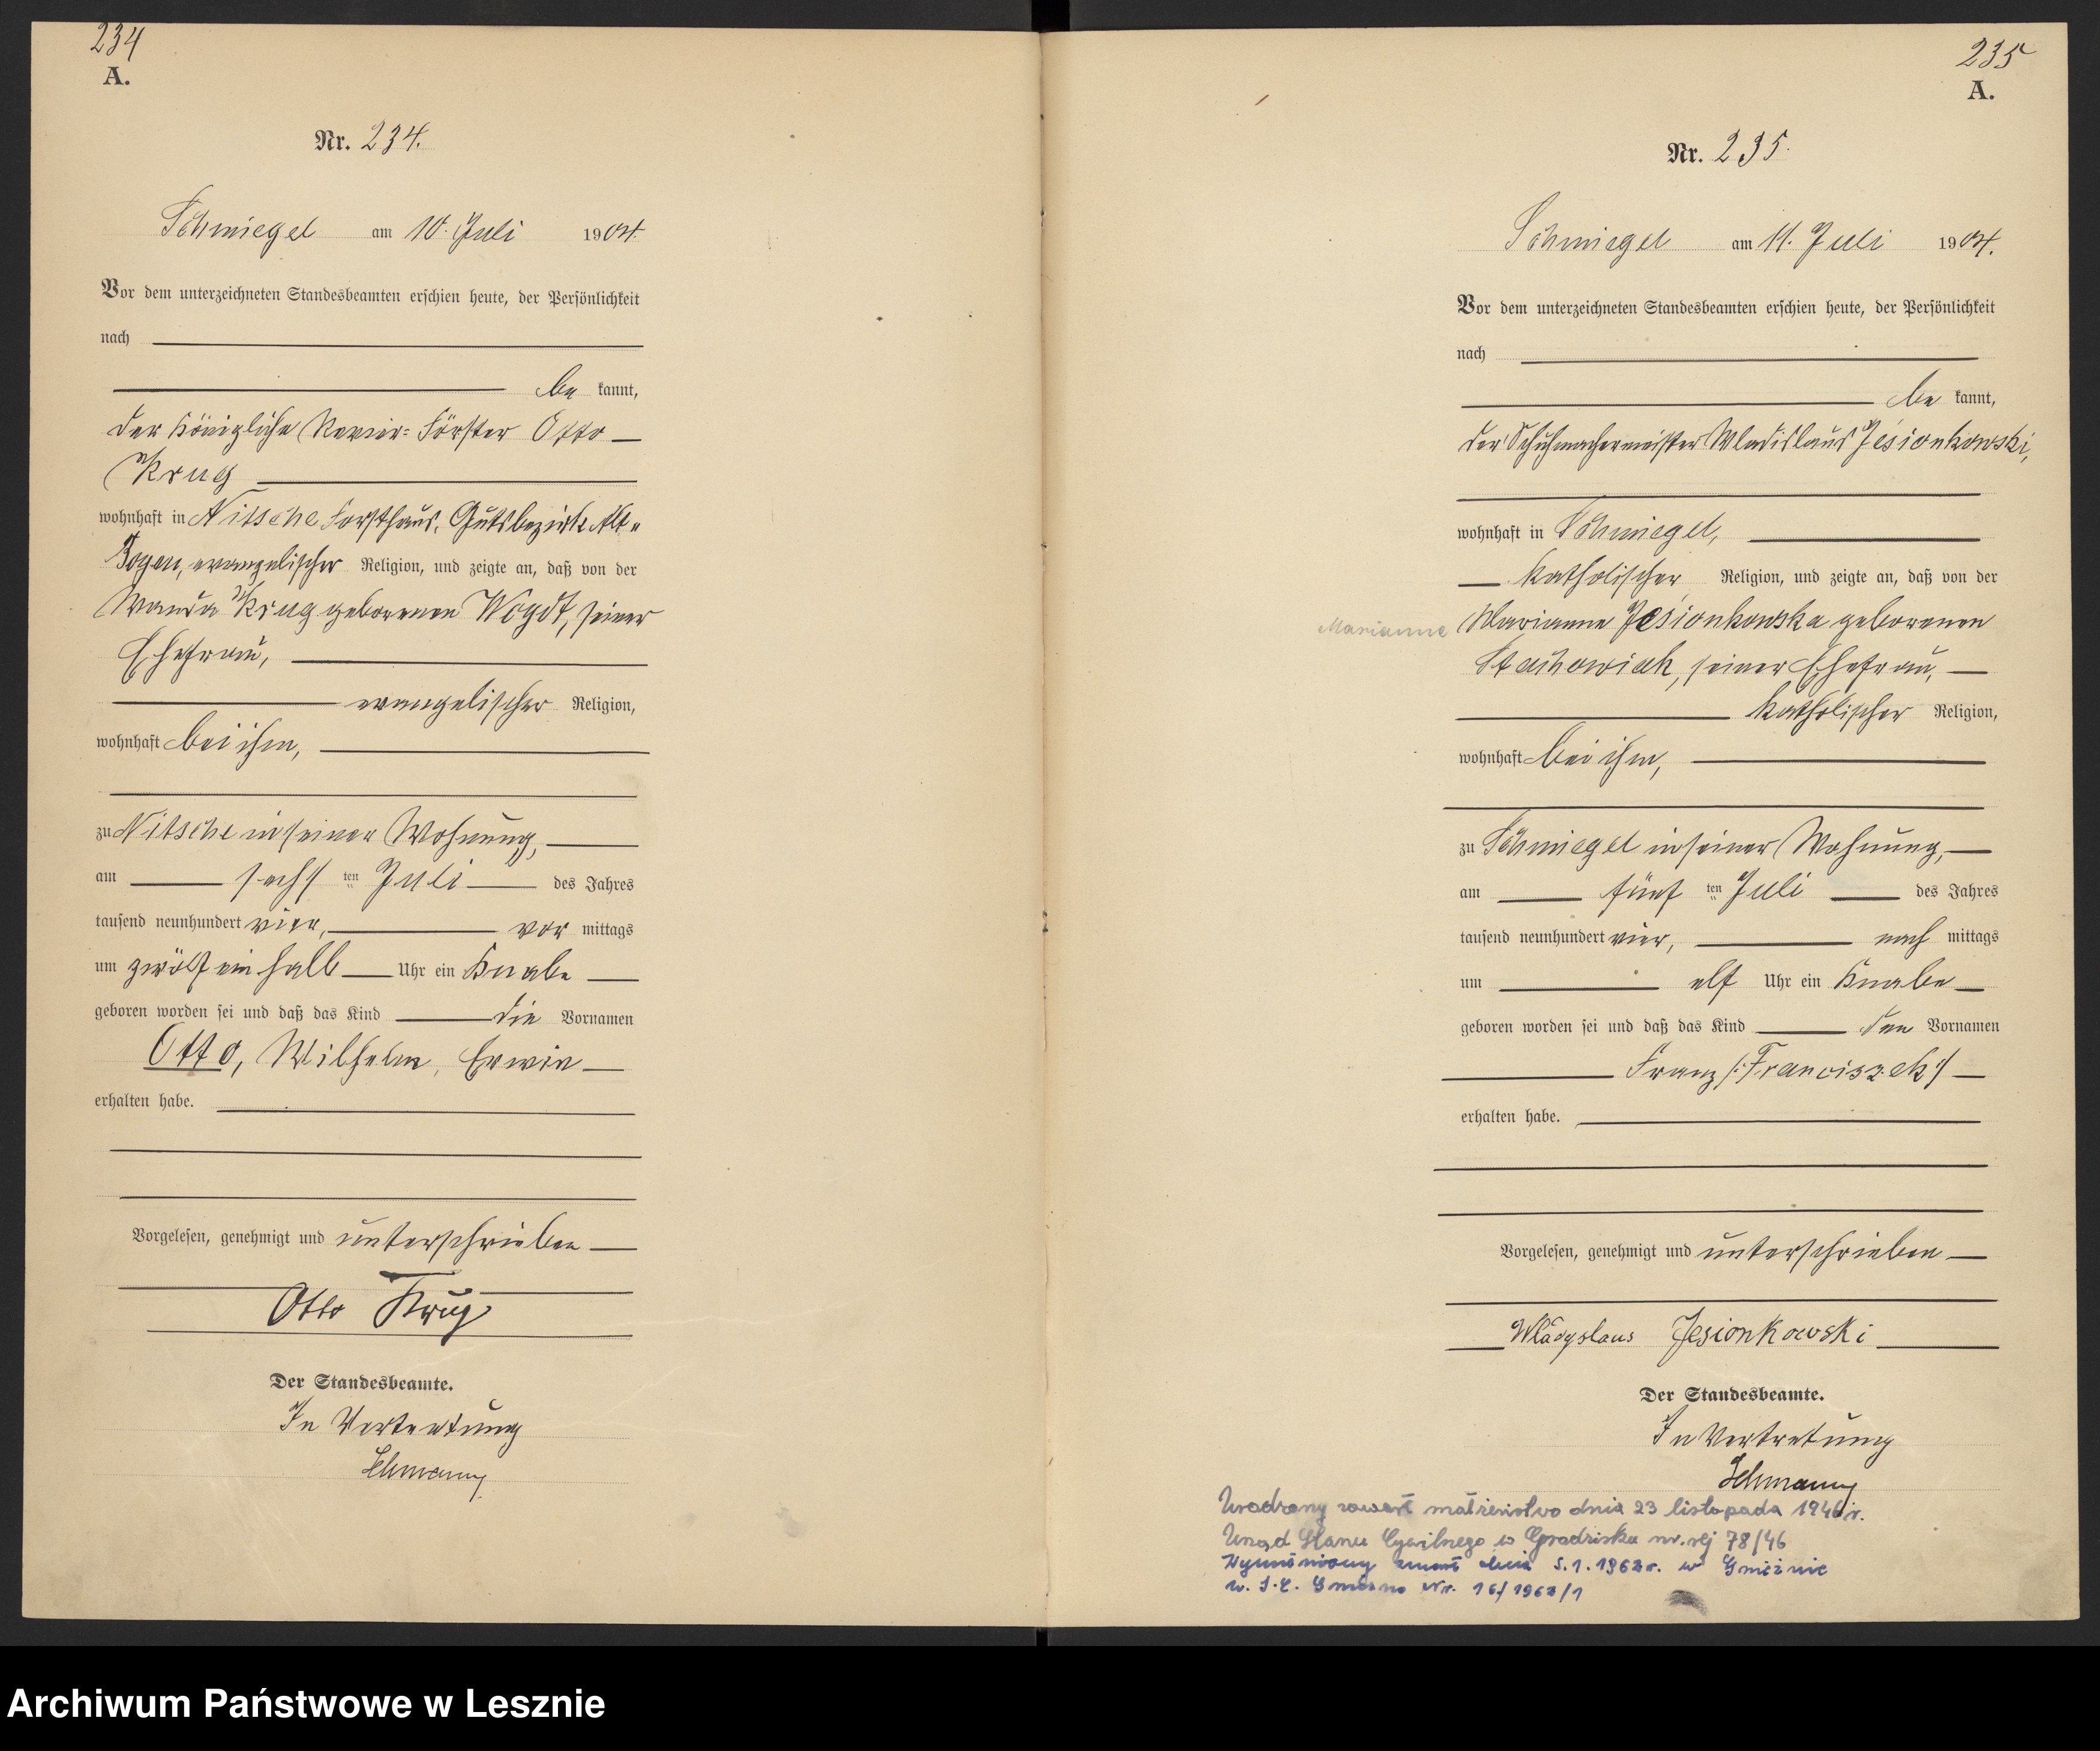 234
A.
Nr. 234.
Schmiegel am 10. Juli 1904.
Vor dem unterzeichneten Standesbeamten erschien heute, der Persönlichkeit
nach
be kannt,
der Königliche Revier-Förster Otto
Krug
wohnhaft in Nitsche Forsthaus, Gutsbezirk Alt-
Bogen, evangelischer Religion, und zeigte an, daß von der
Wanda Krug geborenen Wogdt, seiner
Ehefrau,
evangelischer Religion,
wohnhaft bei ihm,
zu Nitsche in seiner Wohnung,
am sechsten Juli des Jahres
tausend neunhundert vier, vor mittags
um zwölf ein halb Uhr ein Knabe
geboren worden sei und daß das Kind die Vornamen
Otto, Wilhelm, Erwin
erhalten habe.
Vorgelesen, genehmigt und unterschrieben
Otto Krug
Der Standesbeamte.
In Vertretung
Lehmann
235
A.
Nr. 235.
Schmiegel am 11. Juli 1904.
Vor dem unterzeichneten Standesbeamten erschien heute, der Persönlichkeit
nach
be kannt,
der Schuhmachermeister Wladislaus Jesionkowski,
wohnhaft in Schmiegel,
katholischer Religion, und zeigte an, daß von der
Marianne Marianne Jesionkowska geborenen
Stachowiak, seiner Ehefrau,
katholischer Religion,
wohnhaft bei ihm,
zu Schmiegel in seiner Wohnung,
am fünften Juli des Jahres
tausend neunhundert vier, nach mittags
um elf Uhr ein Knabe
geboren worden sei und daß das Kind den Vornamen
Franz /:Franciszek:/
erhalten habe.
Vorgelesen, genehmigt und unterschrieben
Wladyslaus Jesionkowski
Der Standesbeamte.
In Vertretung
Lehmann
Urodzony zawarł małżeństwo dnia 23 listopada 1946 r.
Urząd Stanu Cywilnego w Grodzisku nr. rej 78/46
Wymieniony zmarł dnia 5.1.1962 r. w Gnieźnie
Gniezno Nr. 16/1962/1
Archiwum Państwowe w Lesznie